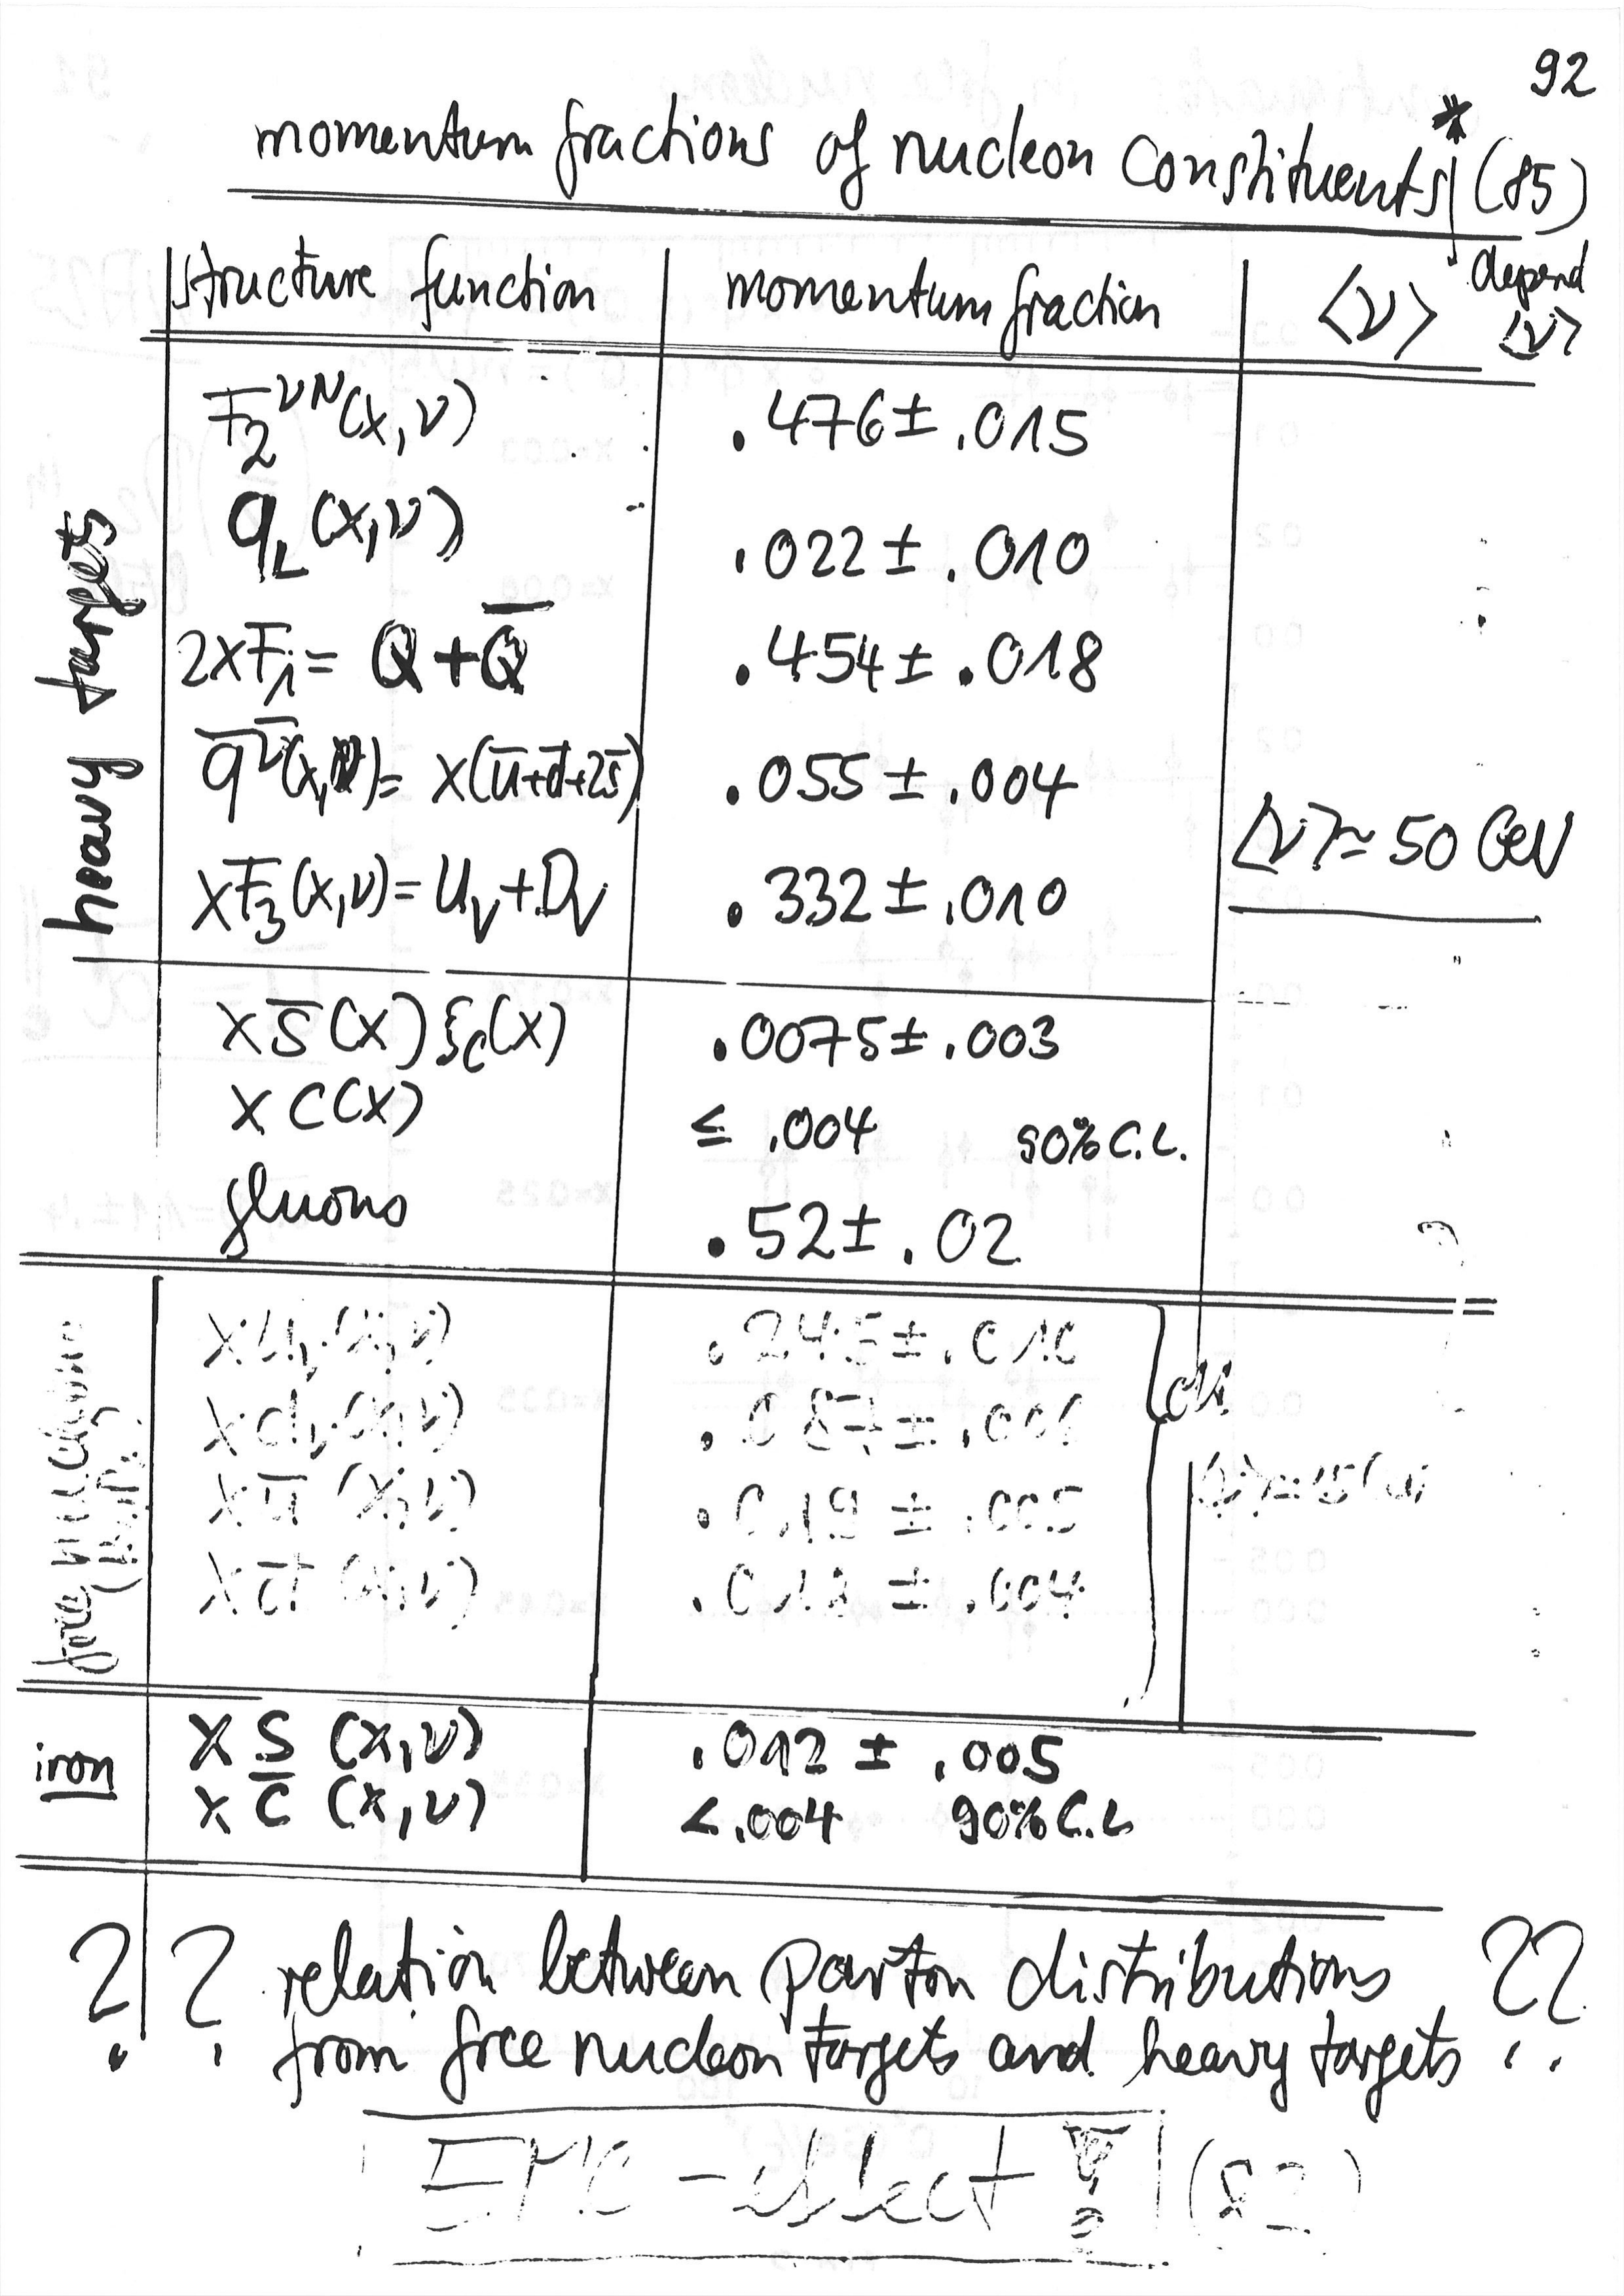 92
momentum fractions of nucleon constituents * (85)
structure function momentum fraction <ν> depend <ν>
heavy targets
F₂^νN(x,ν) .476 ± .015
q_L(x,ν) .022 ± .010
2xF₁ = Q + Q̅ .454 ± .018
q̅^ν̅(x,ν) = x(u̅+d̅+2s̅) .055 ± .004
<ν> ≈ 50 GeV
xF₃(x,ν) = U_V + D_V .332 ± .010
x s̅(x) ξ_c(x) .0075 ± .003
x c(x) ≤ .004 90% C.L.
gluons .52 ± .02
free nucleon
x u_v(x,ν) .245 ± .010
x d_v(x,ν)
x u̅ (x,ν) .019 ± .005
x d̅ (x,ν) ± .004
iron
x s (x,ν) .012 ± .005
x c̅ (x,ν) < .004 90% C.L.
? ? relation between parton distributions ??
from free nucleon targets and heavy targets
EMC - effect (82)